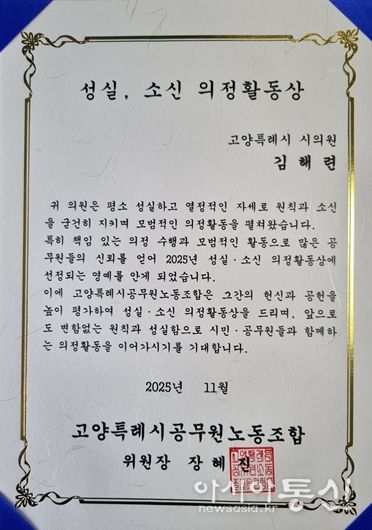 성실, 소신 의정활동상
고양특례시 시의원
김 해 련
귀 의원은 평소 성실하고 열정적인 자세로 원칙과 소신
을 굳건히 지키며 모범적인 의정활동을 펼쳐왔습니다.
특히 책임 있는 의정 수행과 모범적인 활동으로 많은 공
무원들의 신뢰를 얻어 2025년 성실·소신 의정활동상에
선정되는 영예를 안게 되었습니다.
이에 고양특례시공무원노동조합은 그간의 헌신과 공헌을
높이 평가하여 성실·소신 의정활동상을 드리며, 앞으로
도 변함없는 원칙과 성실함으로 시민·공무원들과 함께하
는 의정활동을 이어가시기를 기대합니다.
2025년 11월
고양특례시공무원노동조합
위원장 장 혜 진
아시아통신
newsasia.kr